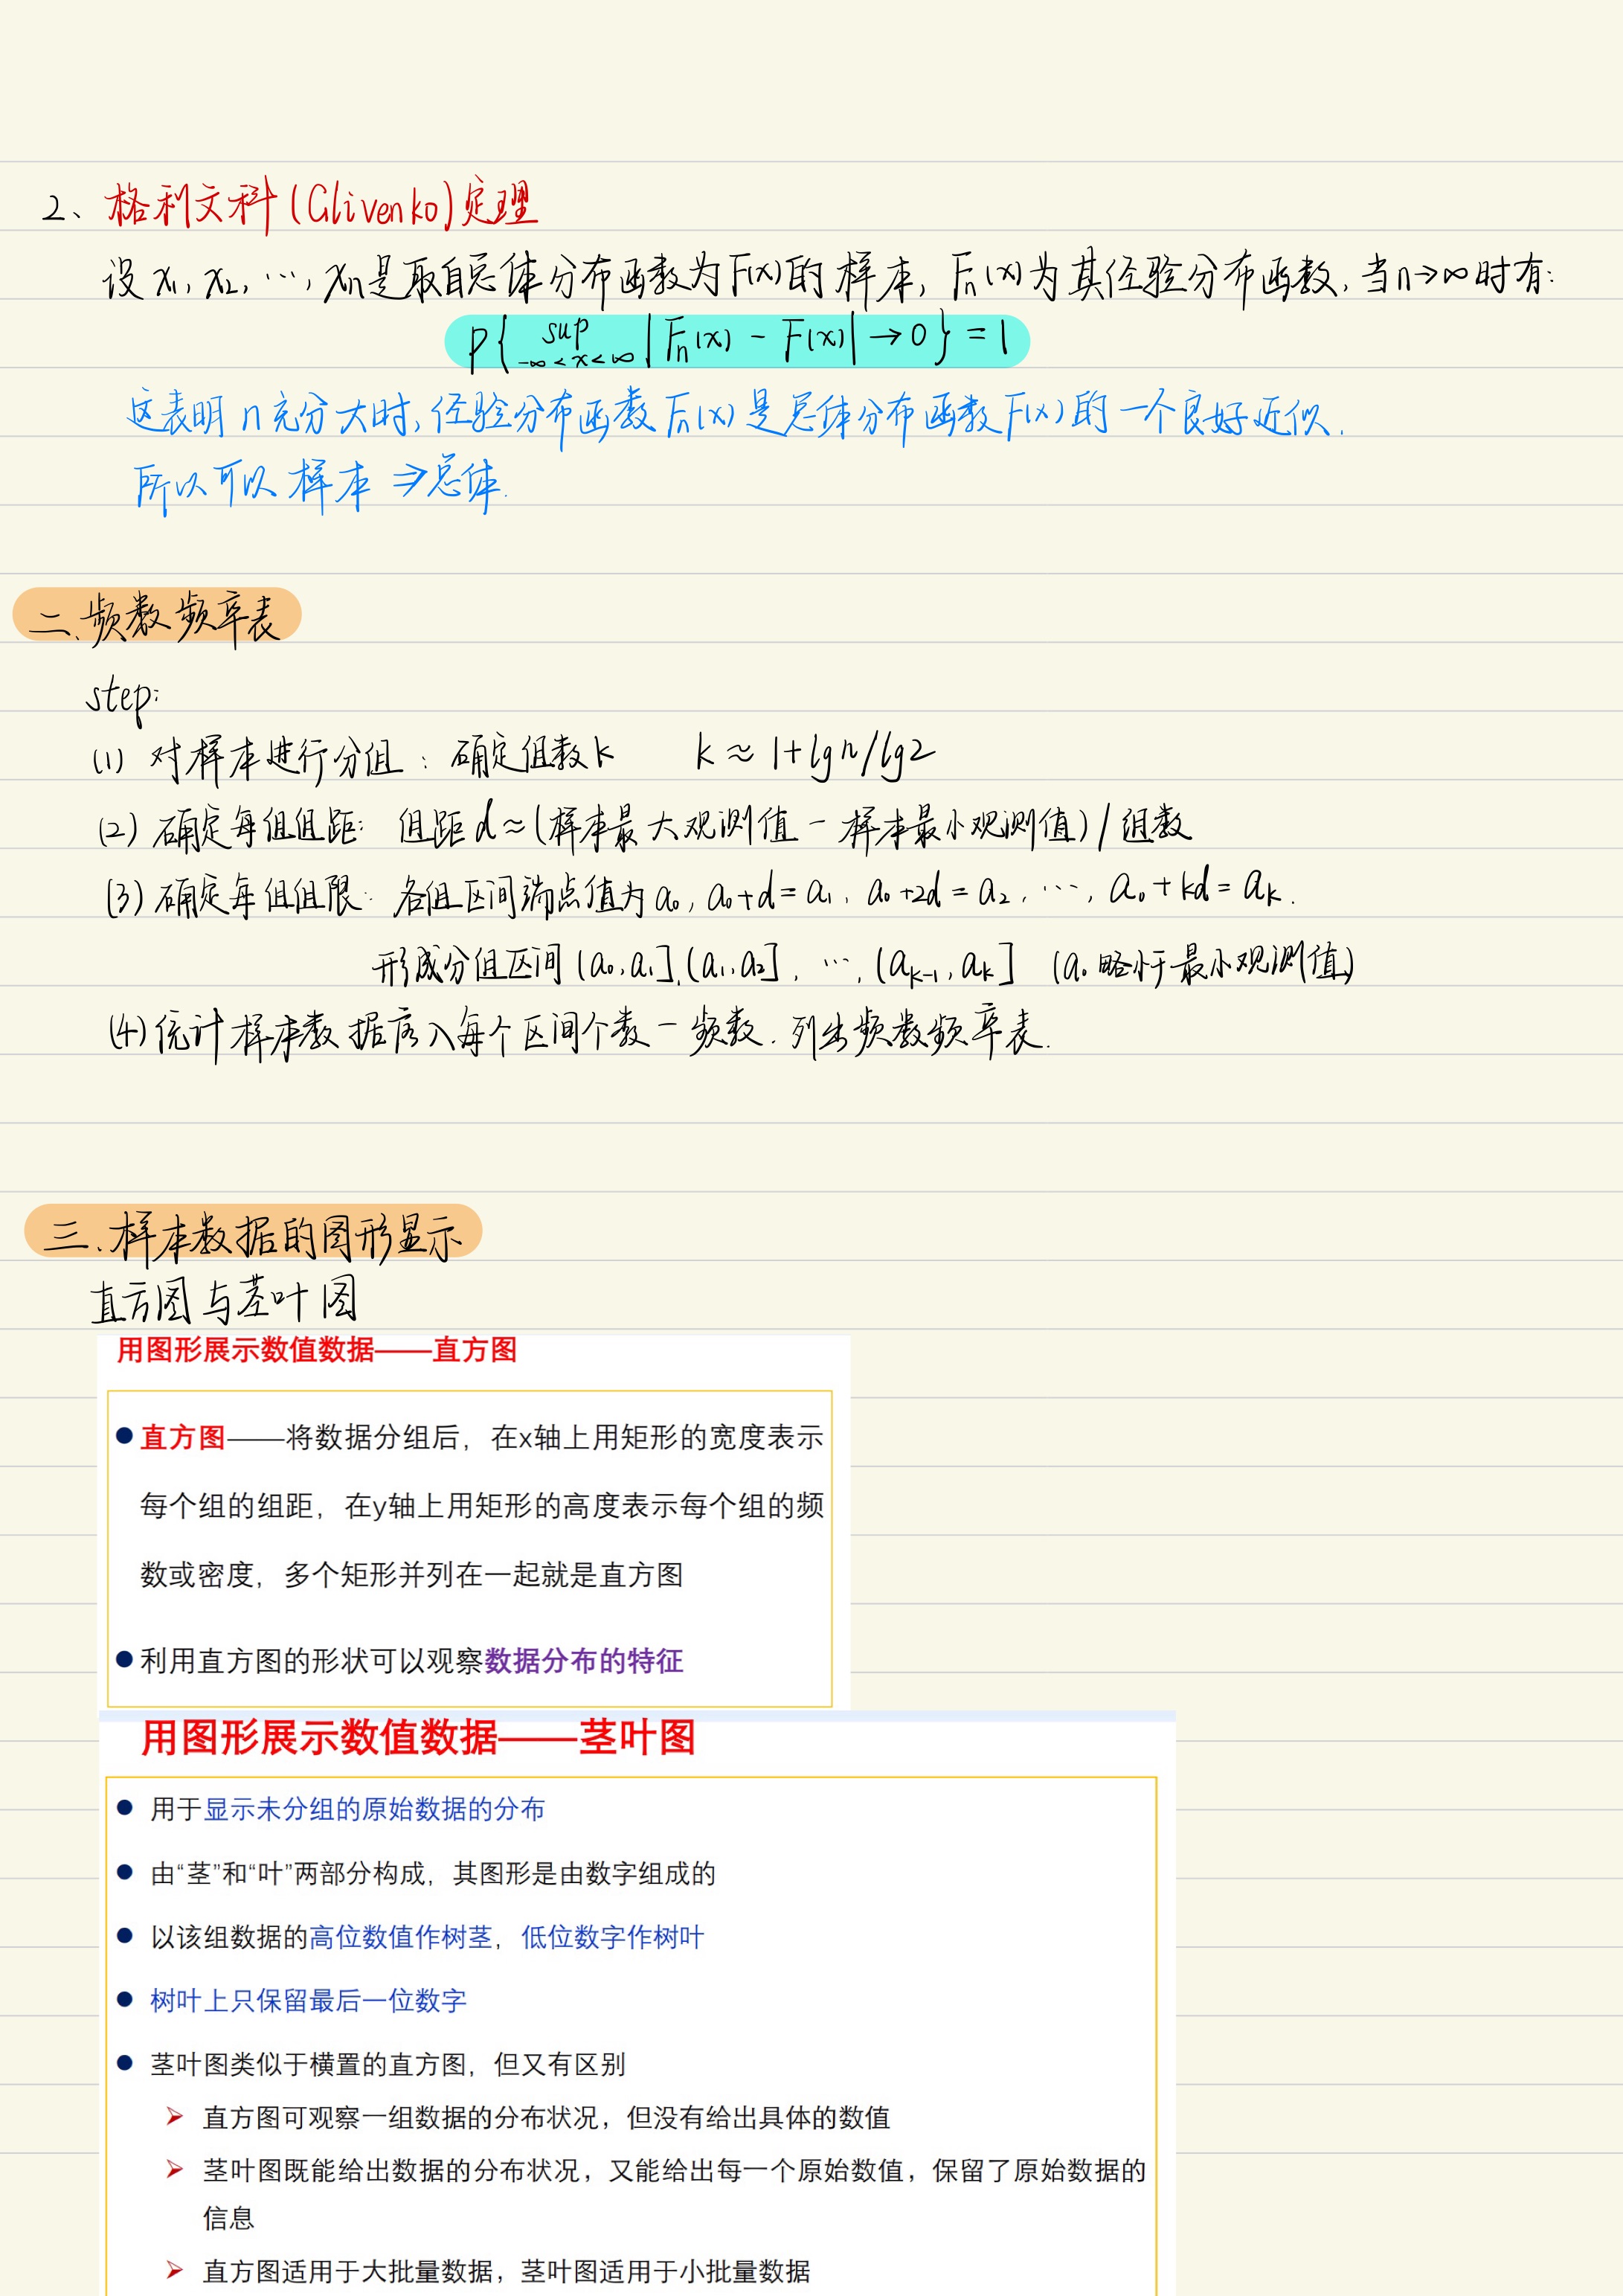 2、格利文科(Glivenko)定理
设 x₁, x₂, …, xₙ是取自总体分布函数为F(x)的样本, Fₙ(x)为其经验分布函数, 当n→∞时有:
P{ sup |Fₙ(x) - F(x)| → 0 } = 1
-∞<x<∞
这表明 n充分大时, 经验分布函数Fₙ(x)是总体分布函数F(x)的一个良好近似.
所以可以 样本 ⇒总体.
二、频数频率表
step:
(1) 对样本进行分组: 确定组数k k ≈ 1+lgn/lg2
(2) 确定每组组距: 组距d≈(样本最大观测值 - 样本最小观测值)/组数
(3) 确定每组组限: 各组区间端点值为a₀, a₀+d=a₁, a₀+2d=a₂, …, a₀+kd=aₖ.
形成分组区间(a₀,a₁],(a₁,a₂], …, (aₖ₋₁,aₖ] (a₀略小于最小观测值)
(4) 统计样本数据落入每个区间个数 - 频数. 列出频数频率表.
三、样本数据的图形显示
直方图与茎叶图
用图形展示数值数据——直方图
● 直方图——将数据分组后,在x轴上用矩形的宽度表示
每个组的组距,在y轴上用矩形的高度表示每个组的频
数或密度,多个矩形并列在一起就是直方图
● 利用直方图的形状可以观察数据分布的特征
用图形展示数值数据——茎叶图
● 用于显示未分组的原始数据的分布
● 由“茎”和“叶”两部分构成,其图形是由数字组成的
● 以该组数据的高位数值作树茎,低位数字作树叶
● 树叶上只保留最后一位数字
● 茎叶图类似于横置的直方图,但又有区别
➢ 直方图可观察一组数据的分布状况,但没有给出具体的数值
➢ 茎叶图既能给出数据的分布状况,又能给出每一个原始数值,保留了原始数据的
信息
➢ 直方图适用于大批量数据,茎叶图适用于小批量数据